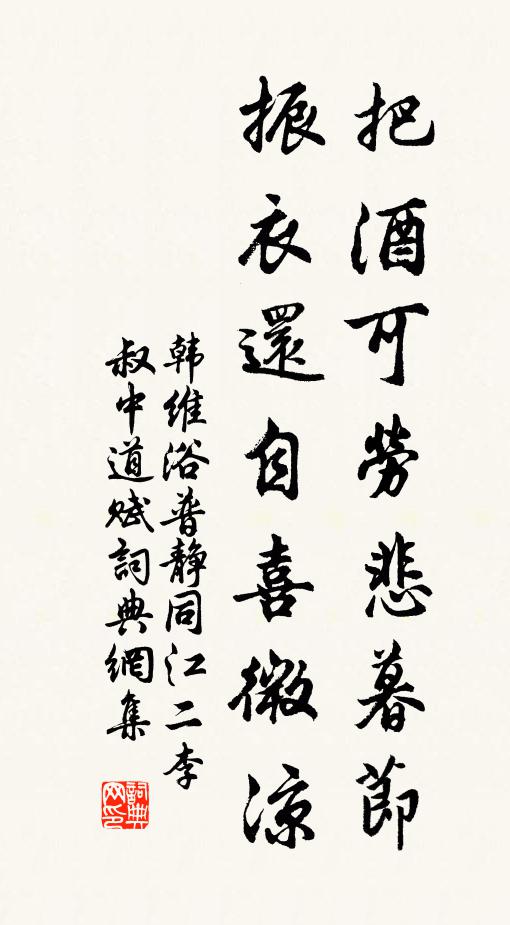 把酒可勞悲暮節
振衣還自喜微涼
韩維浴普静同江二李
叔中道賦詞典網集
詞典网印